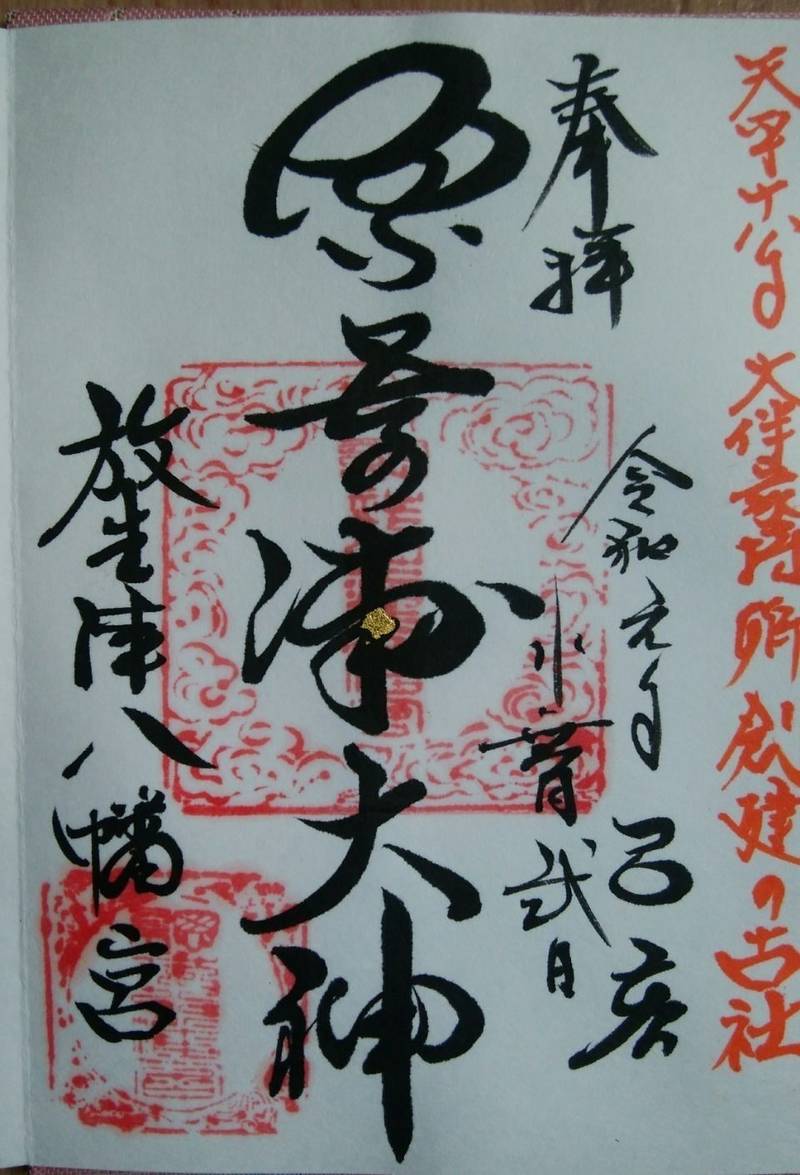 天平十八年 大伴家持卿創建の古社
奉拝
令和元年 己亥
水無月弐日
奈呉の浦大神
放生津八幡宮